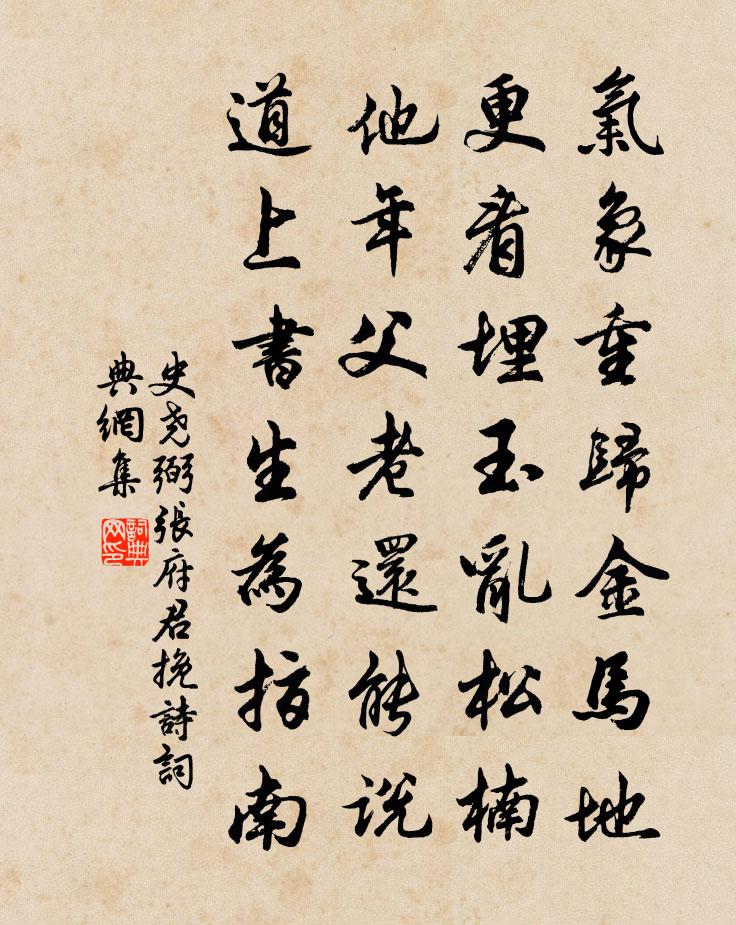 氣象重歸金馬地
更看埋玉亂松楠
他年父老還能說
道上書生為指南
史堯弼張府君挽詩詞
典網集
詞典網印